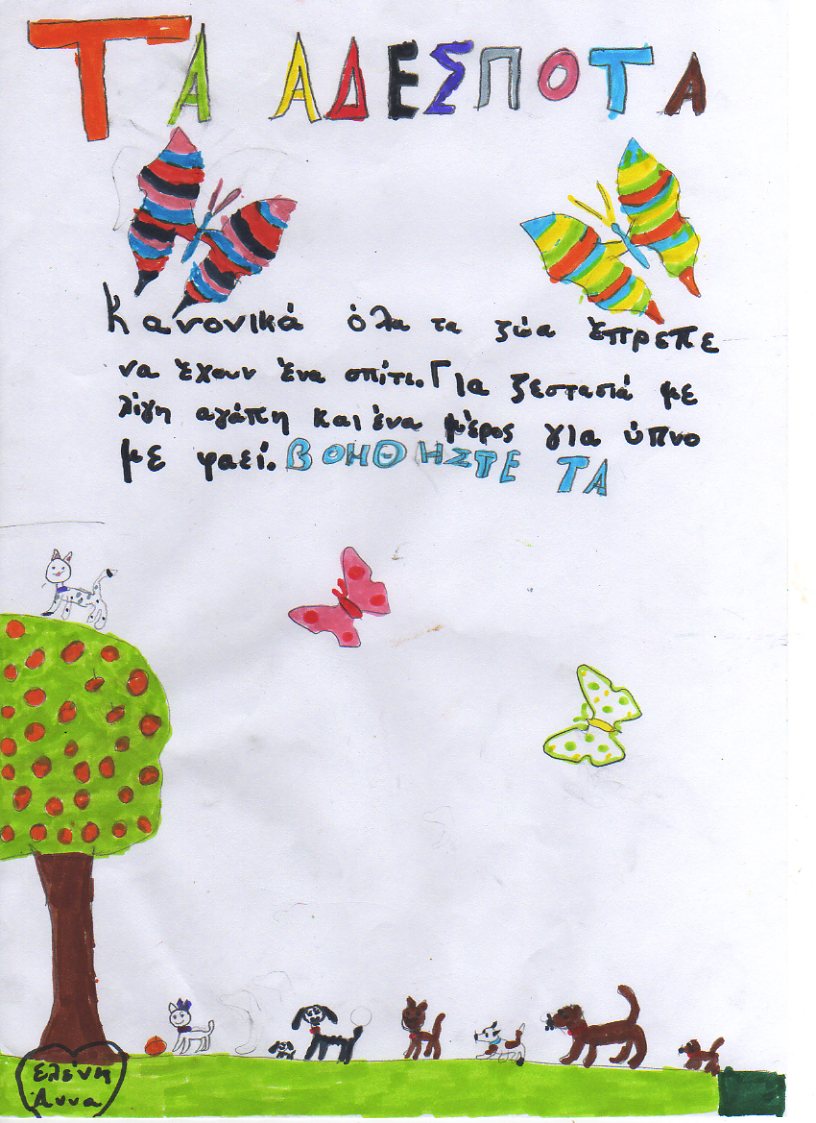 ΤΑ ΑΔΕΣΠΟΤΑ
Κανονικά όλα τα ζώα έπρεπε
να έχουν ένα σπίτι. Για ζεστασιά με
λίγη αγάπη και ένα μέρος για ύπνο
με φαεί. ΒΟΗΘΗΣΤΕ ΤΑ
Ελένη
Άννα